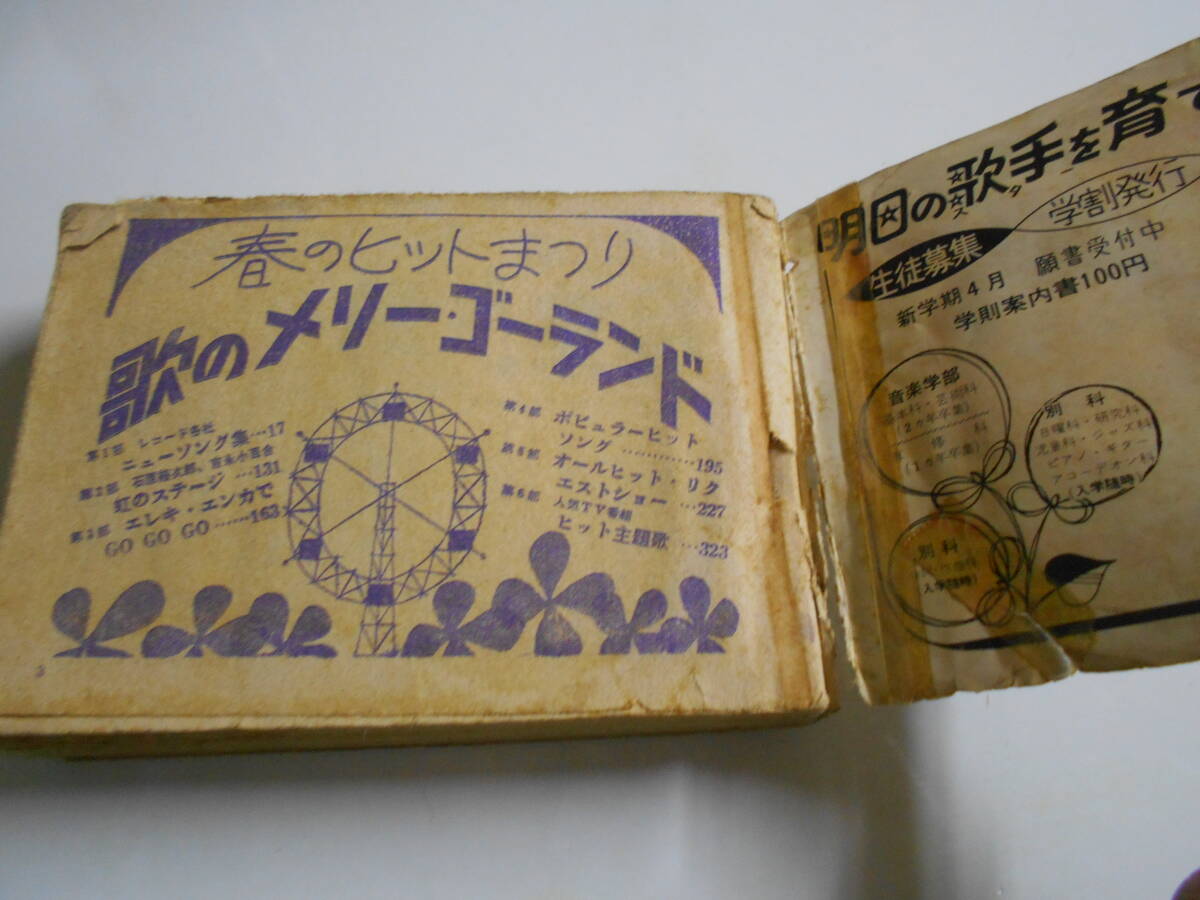 春のヒットまつり
歌のメリー・ゴーランド
第1部 レコード各社
ニューソング集…17
第2部 石原裕次郎、吉永小百合
虹のステージ …131
第3部 エレキ・エンカで
GO GO GO ……163
第4部 ポピュラーヒット
ソング …………195
第5部 オールヒット・リク
エストショー …227
第6部 人気TV番組
ヒット主題歌 …323
3
明日の歌手を育て
スター
学割発行
生徒募集
新学期4月 願書受付中
学則案内書100円
音楽学部
本科・芸術科
(2ヵ年卒業)
修科
(1ヵ年卒業)
別科
日曜科・研究科
児童科・ジャズ科
ピアノ・ギター
アコーデオン科
(入学随時)
別科
(入学随時)